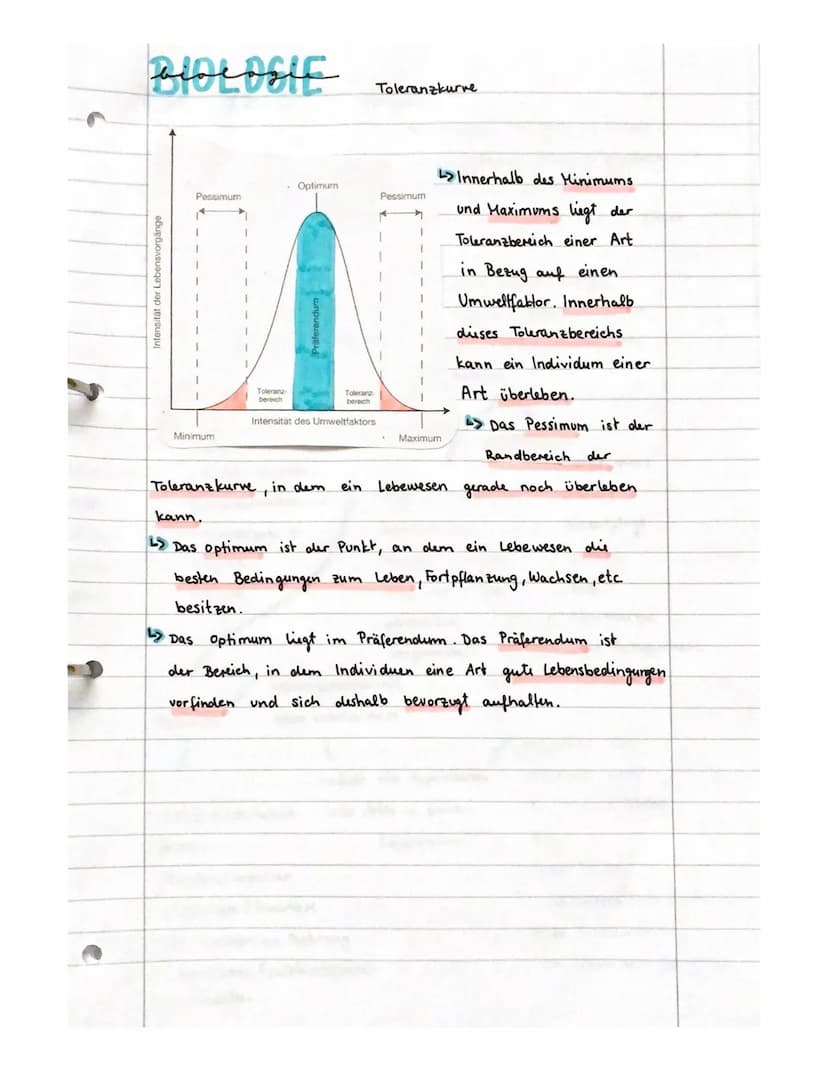 BIOLOGIE
biologie
Toleranzkurve
Intensität der Lebensvorgänge
Pessimum
Optimum
Pessimum
Präferendum
Toleranz-
bereich
Toleranz-
bereich
Intensität des Umweltfaktors
Minimum
Maximum
↳ Innerhalb des Minimums
und Maximums liegt der
Toleranzbereich einer Art
in Bezug auf einen
Umweltfaktor. Innerhalb
dieses Toleranzbereichs
kann ein Individum einer
Art überleben.
↳ Das Pessimum ist der
Randbereich der
Toleranzkurve, in dem ein Lebewesen gerade noch überleben
kann.
↳ Das optimum ist der Punkt, an dem ein Lebewesen die
besten Bedingungen zum Leben, Fortpflanzung, Wachsen, etc
besitzen.
↳ Das Optimum liegt im Präferendum. Das Präferendum ist
der Bereich, in dem Individuen eine Art gute Lebensbedingungen
vorfinden und sich deshalb bevorzugt aufhalten.